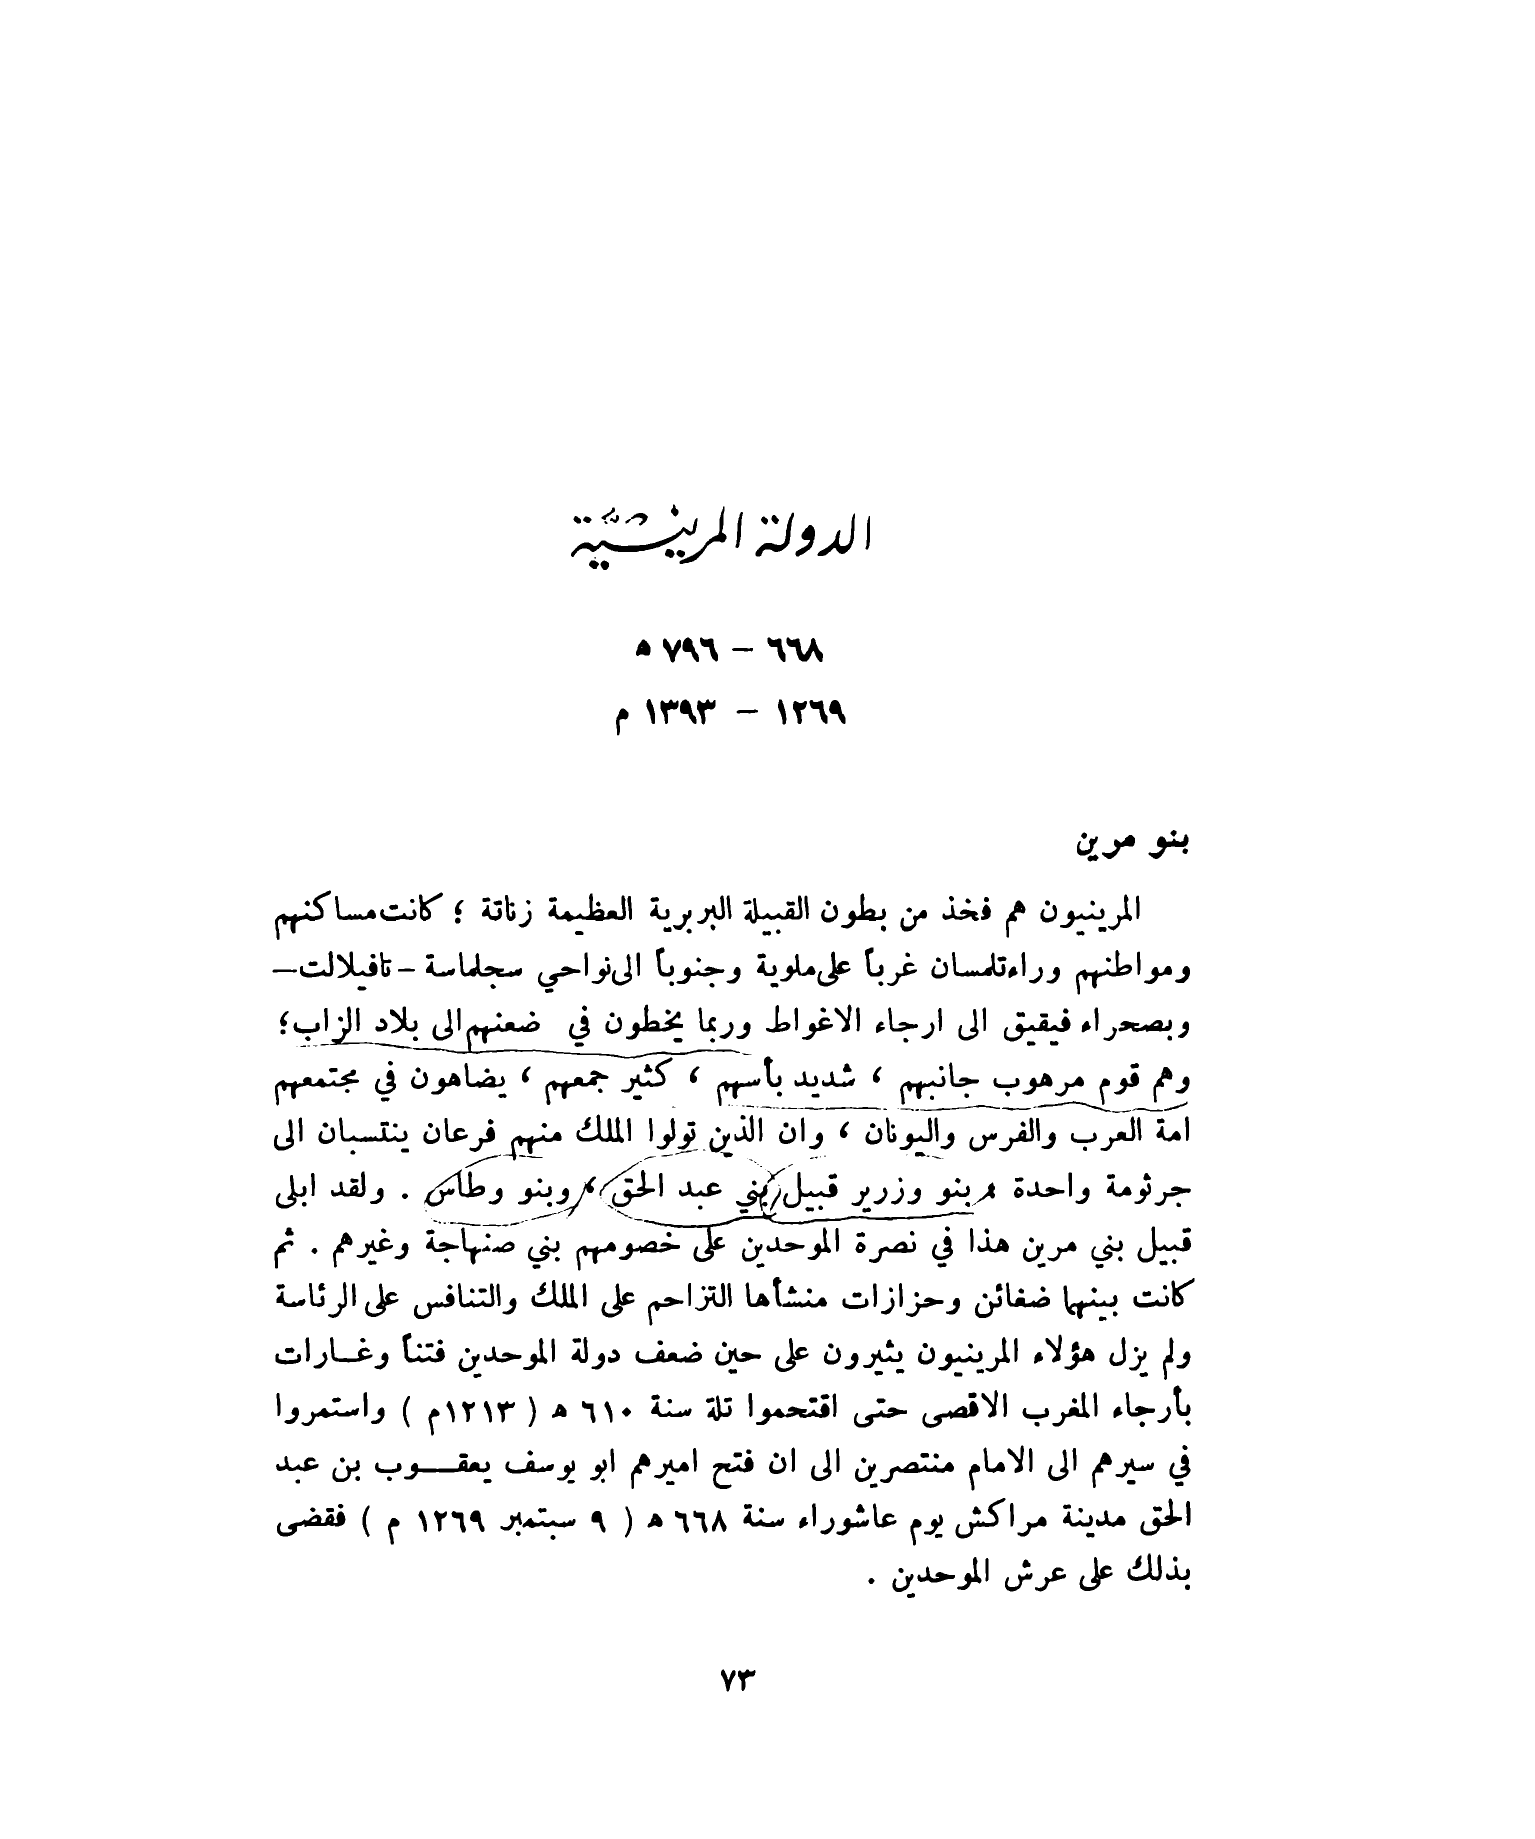 الدولة المرينية
٦٦٨ – ٧٩٦ ه
١٢٦٩ – ١٣٩٣ م
بنو مرين
المرينيون هم فخذ من بطون القبيلة البربرية العظيمة زناتة ؛ كانت مساكنهم
ومواطنهم وراء تلمسان غرباً على ملوية وجنوباً الى نواحي سجلماسة – تافيلالت –
وبصحراء فيقيق الى ارجاء الاغواط وربما يخطون في ضعنهم الى بلاد الزاب ؛
وهم قوم مرهوب جانبهم ، شديد بأسهم ، كثير جمعهم ، يضاهون في مجتمعهم
امة العرب والفرس واليونان ، وان الذين تولوا الملك منهم فرعان ينتسبان الى
جرثومة واحدة ، بنو وزرير قبيل بني عبد الحق ، وبنو وطاس . ولقد ابلى
قبيل بني مرين هذا في نصرة الموحدين على خصومهم بني صنهاجة وغيرهم . ثم
كانت بينهما ضغائن وحزازات منشأها التزاحم على الملك والتنافس على الرئاسة
ولم يزل هؤلاء المرينيون يثيرون على حين ضعف دولة الموحدين فتناً وغــارات
بأرجاء المغرب الاقصى حتى اقتحموا تلة سنة ٦١٠ ه ( ١٢١٣م ) واستمروا
في سيرهم الى الامام منتصرين الى ان فتح اميرهم ابو يوسف يعقــوب بن عبد
الحق مدينة مراكش يوم عاشوراء سنة ٦٦٨ ه ( ٩ سبتمبر ١٢٦٩ م ) فقضى
بذلك على عرش الموحدين .
٧٣